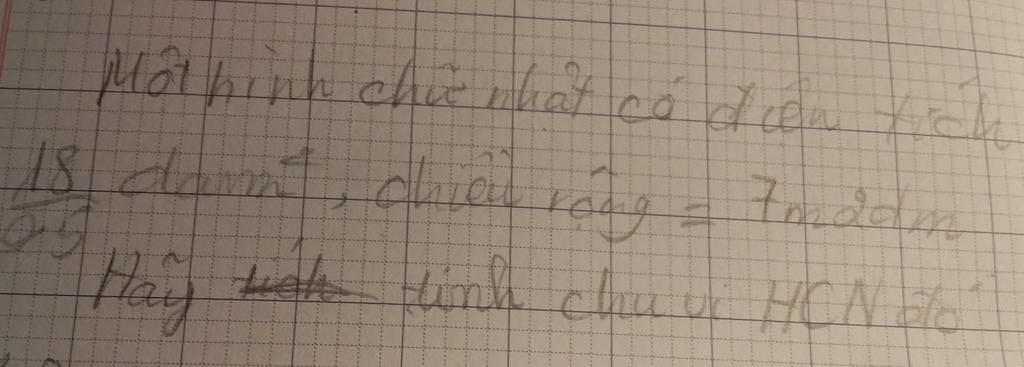 Một hình chữ nhật có diện tích
18/25 dam², chiều rộng = 7m2dm
Hãy tính chu vi HCN đó